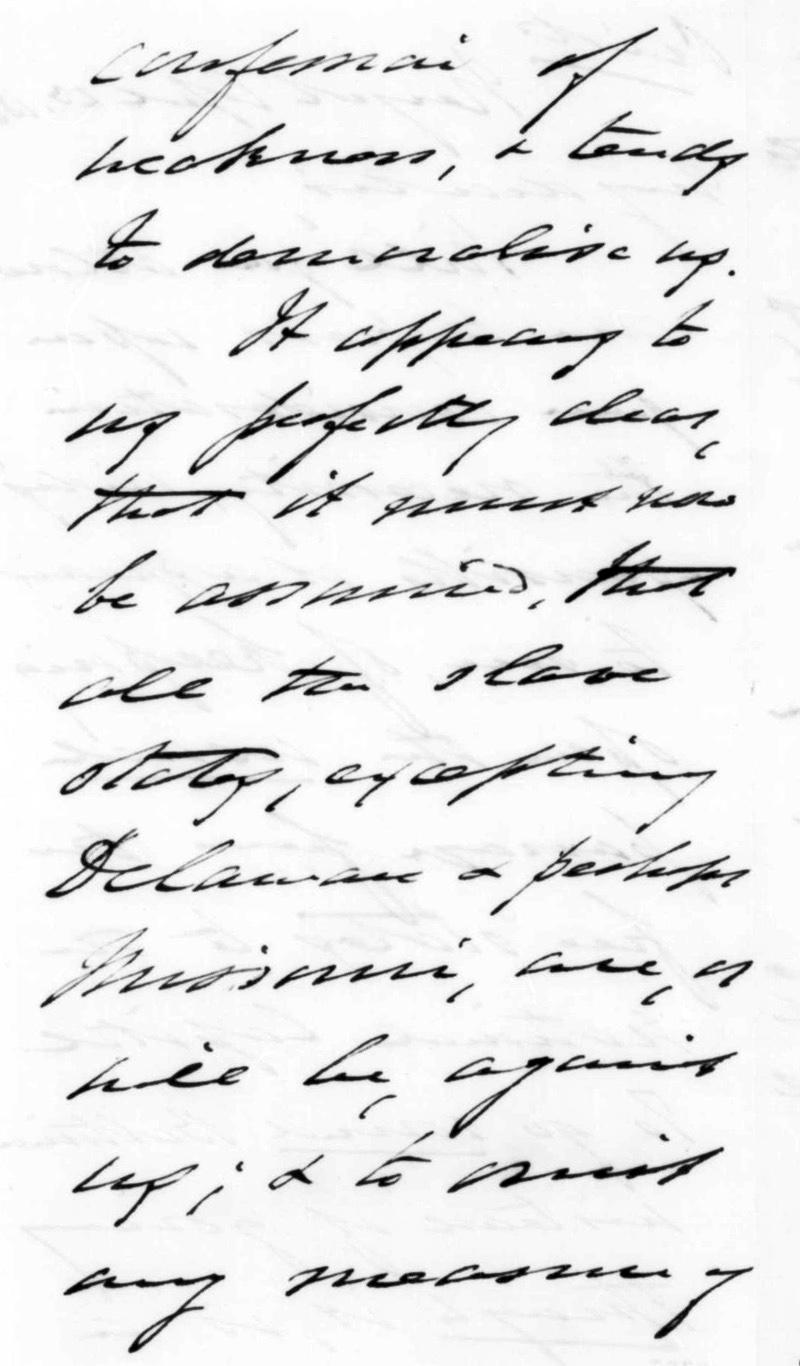 confession of
weakness, & tends
to demoralise us.
It appears to
us perfectly clear,
that it must now
be assumed, that
all the slave
states, excepting
Delaware & perhaps
Missouri, are, or
will be, against
us; & to omit
any measure of